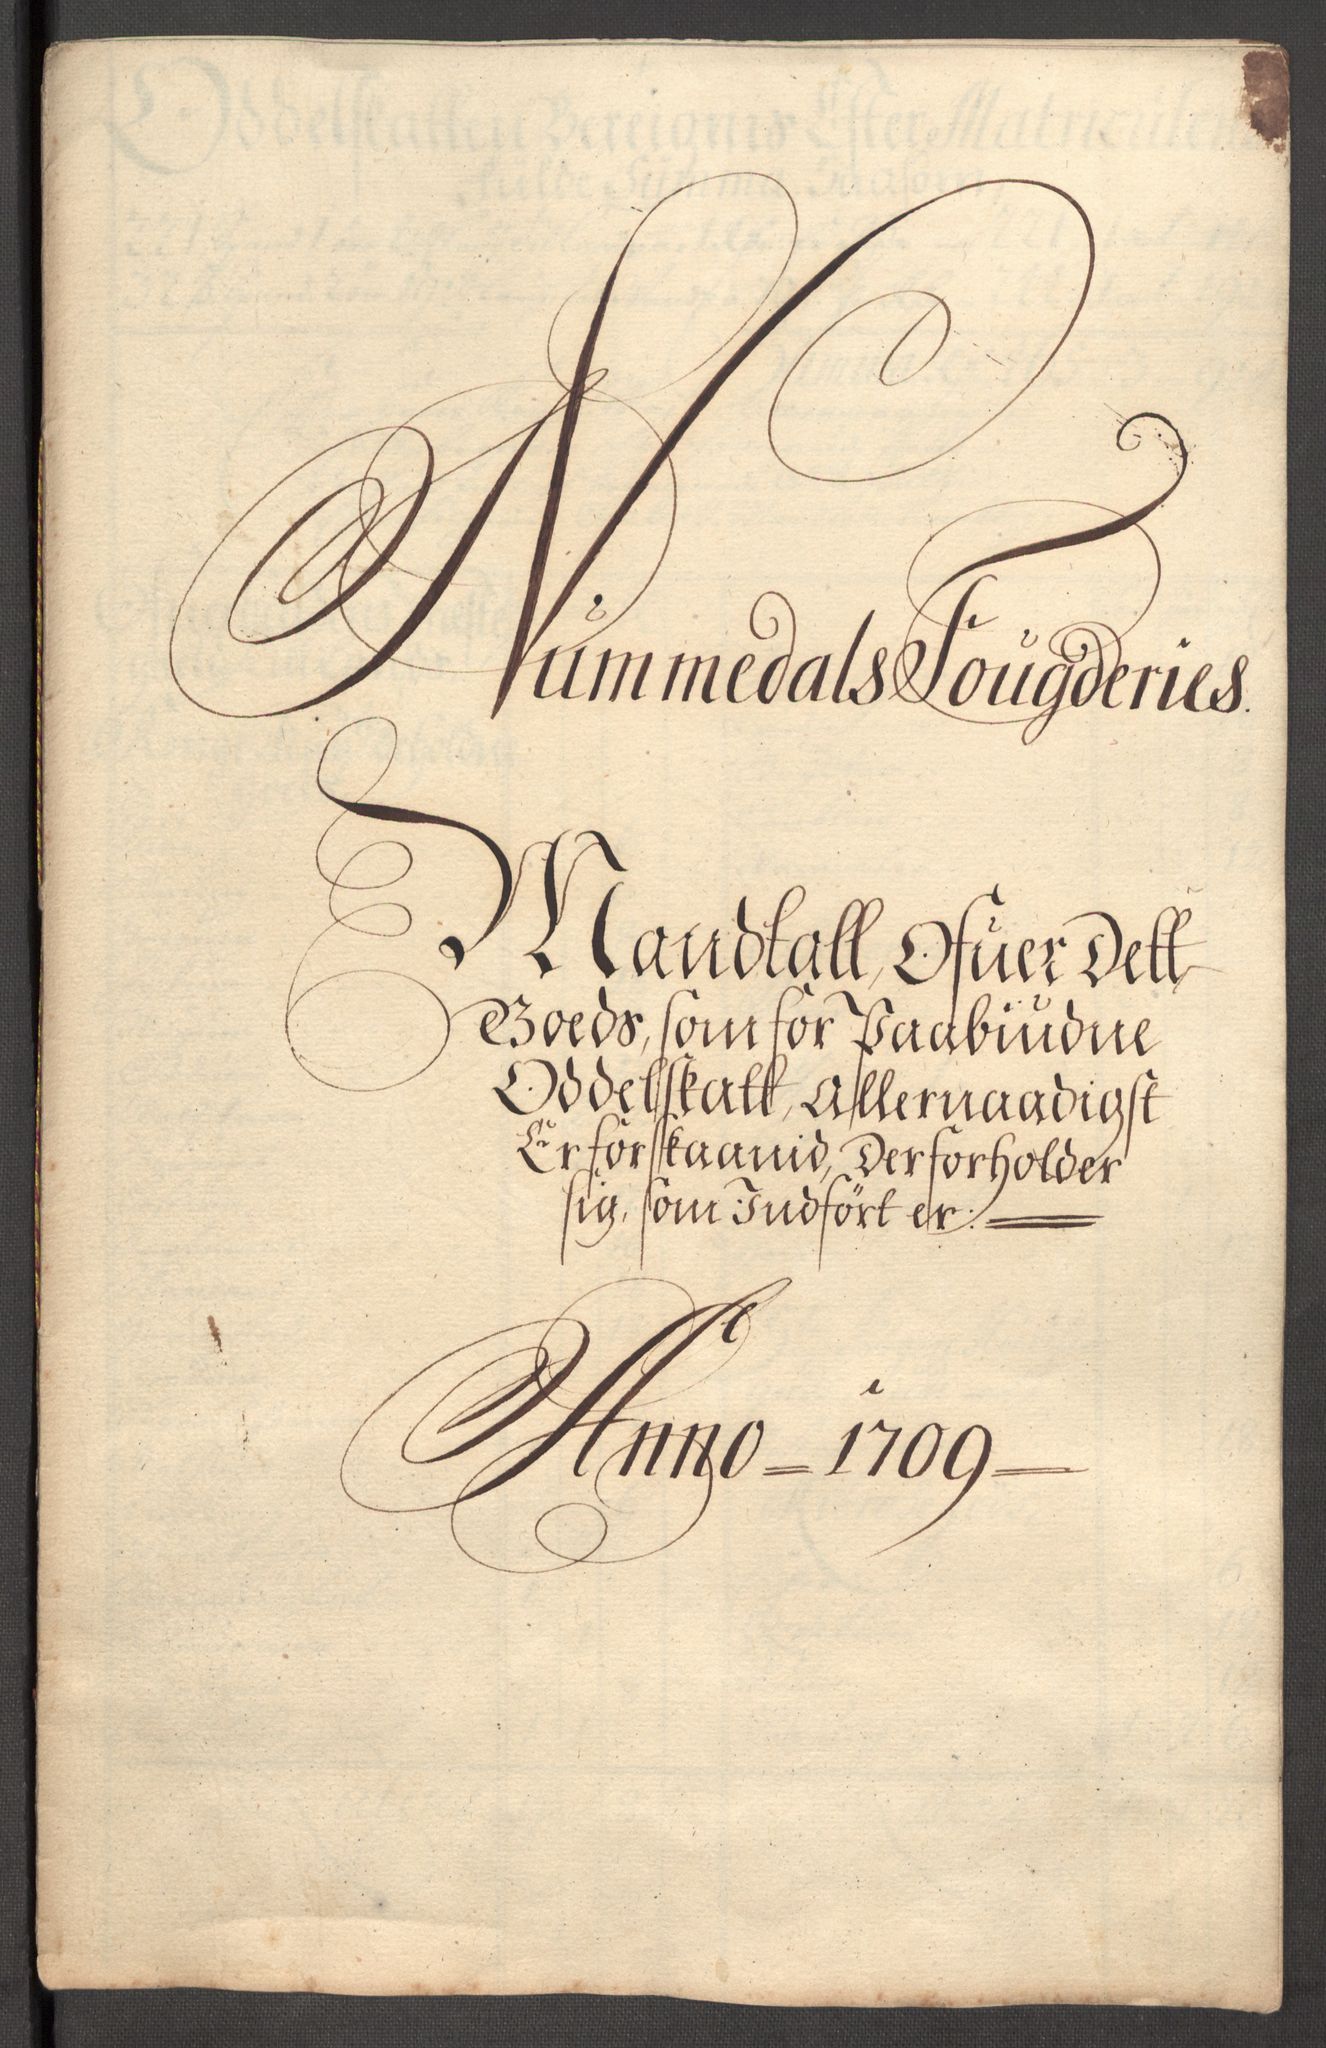 Nummedals Fougderies.
Mandtall, Ofuer Dett
Goeds, som for Paabiudne
Oddelskatt, Allernaadigst
Er forskaanid, Derforholder
sig, som Indført er.
Anno 1709